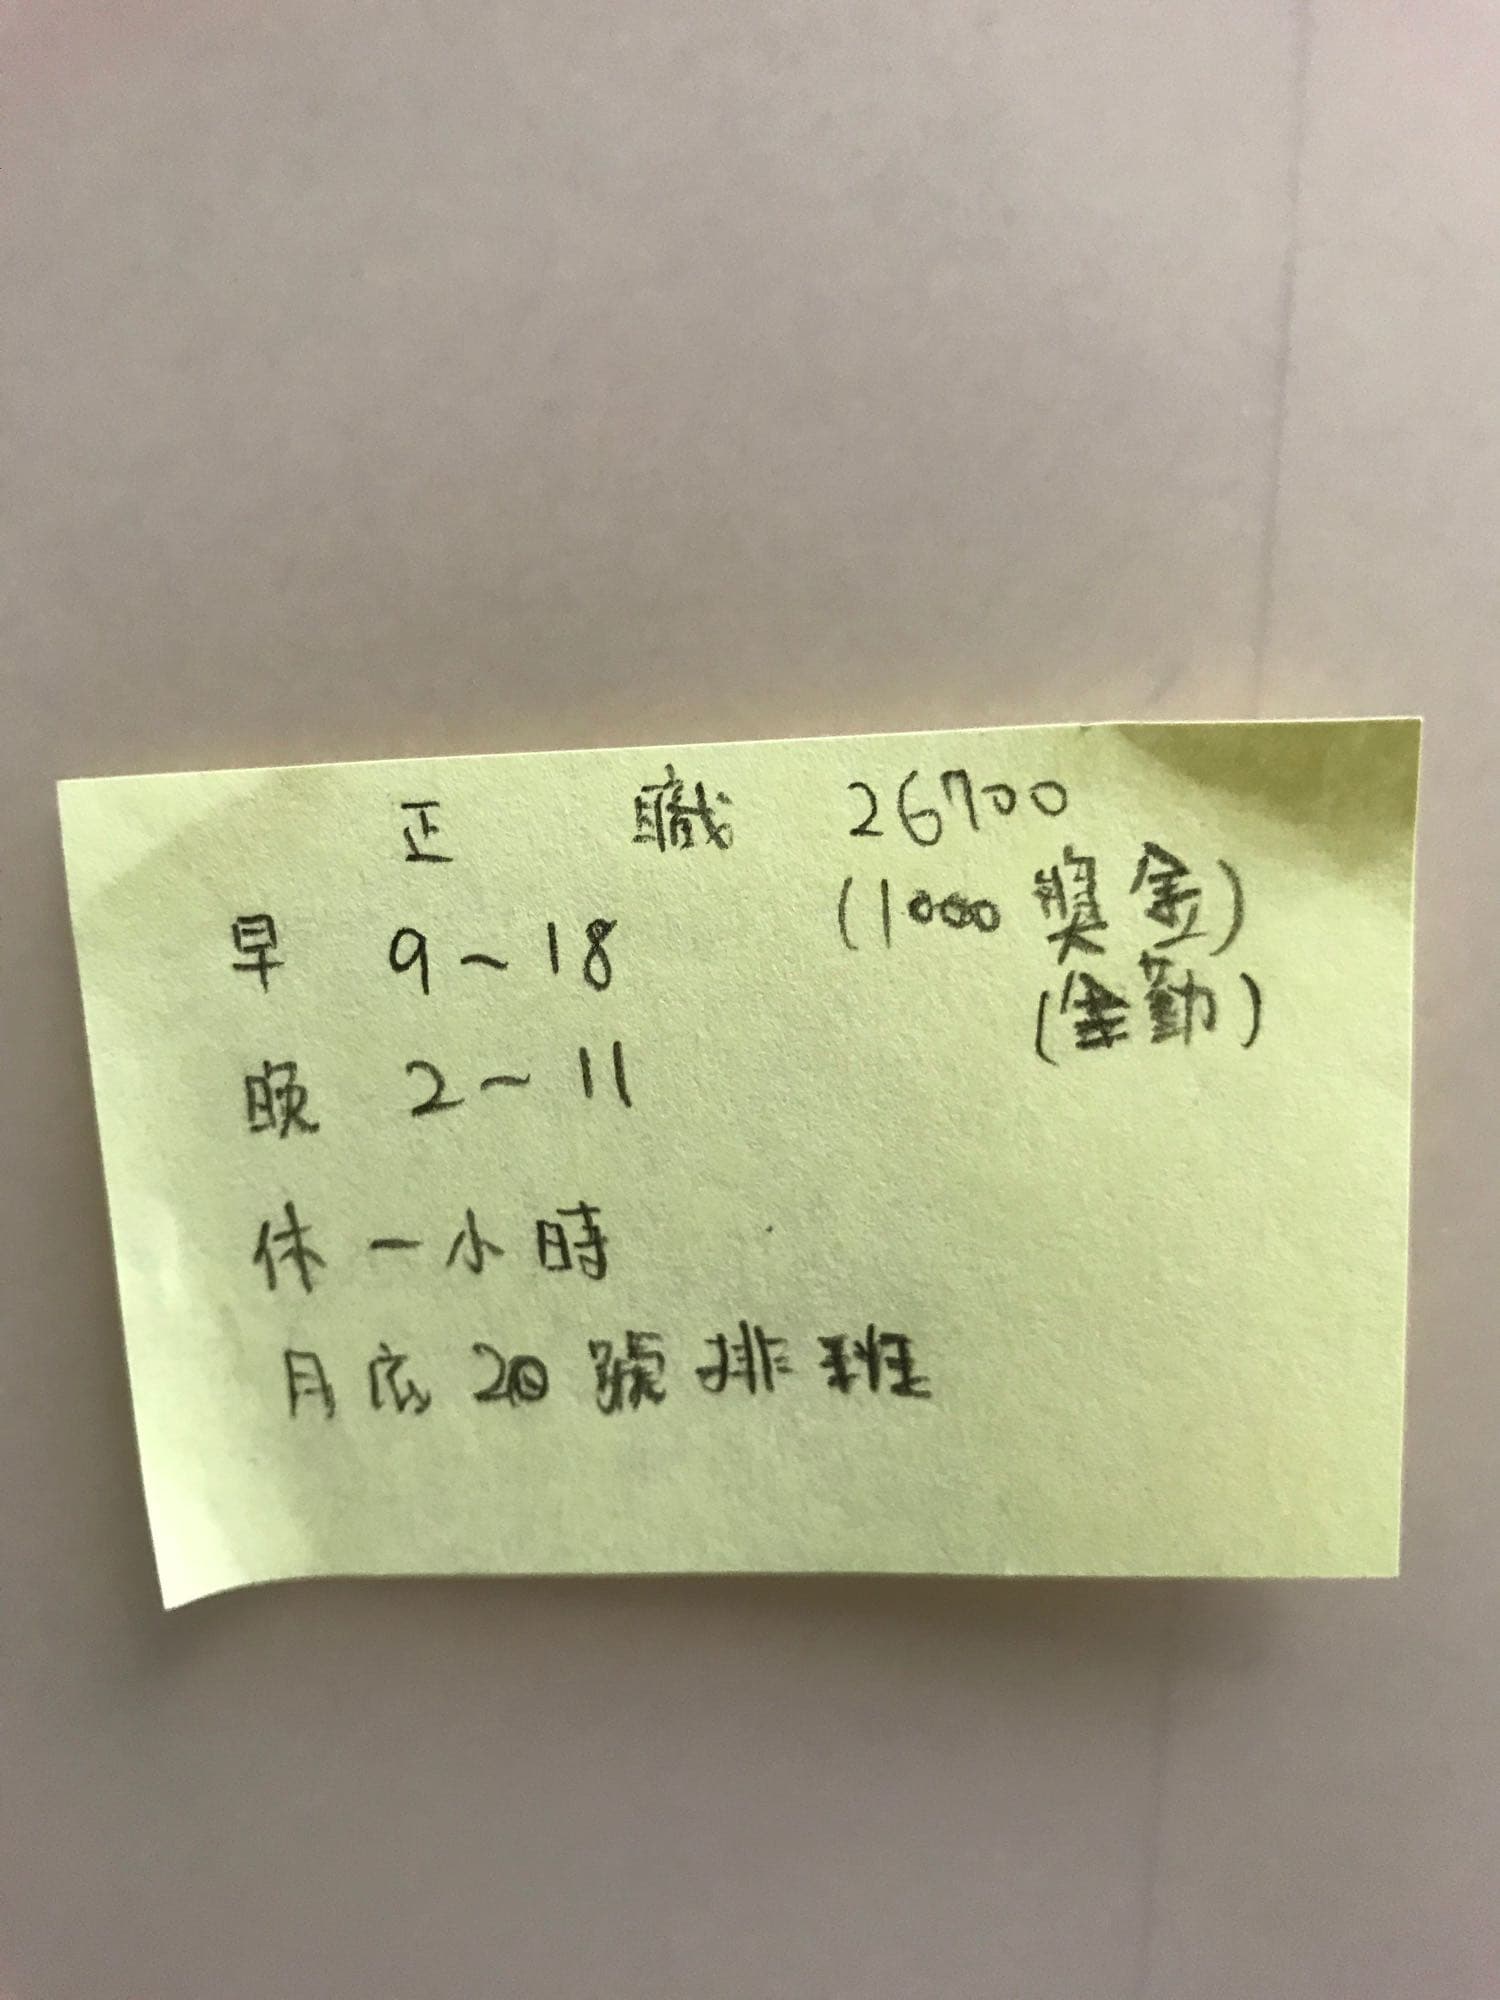 正 職 26700
(1000 獎金)
早 9~18
(全勤)
晚 2~11
休一小時
月底 20 號排班